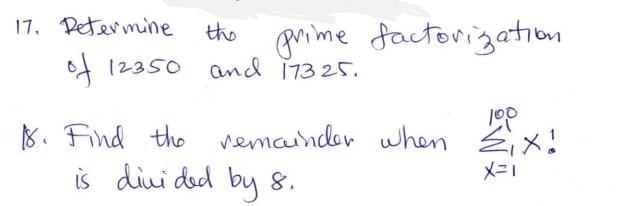 17. Determine the prime factorization
of 12350 and 17325.
18. Find the remainder when 100 Σ x=1 x!
is divided by 8.